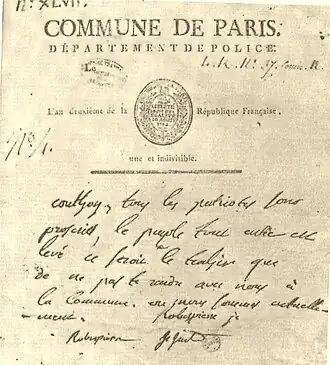 N° XLVII.
COMMUNE DE PARIS.
DÉPARTEMENT DE POLICE.
Le
L'an deuxième de la République Française,
une et indivisible.
couthon, tous les patriotes sont
proscrits, le peuple tout entier est
levé ce seroit le trahir que
de ne pas te rendre avec nous à
la Commune où nous sommes actuelle-
ment. Robespierre j
Robespierre St Just